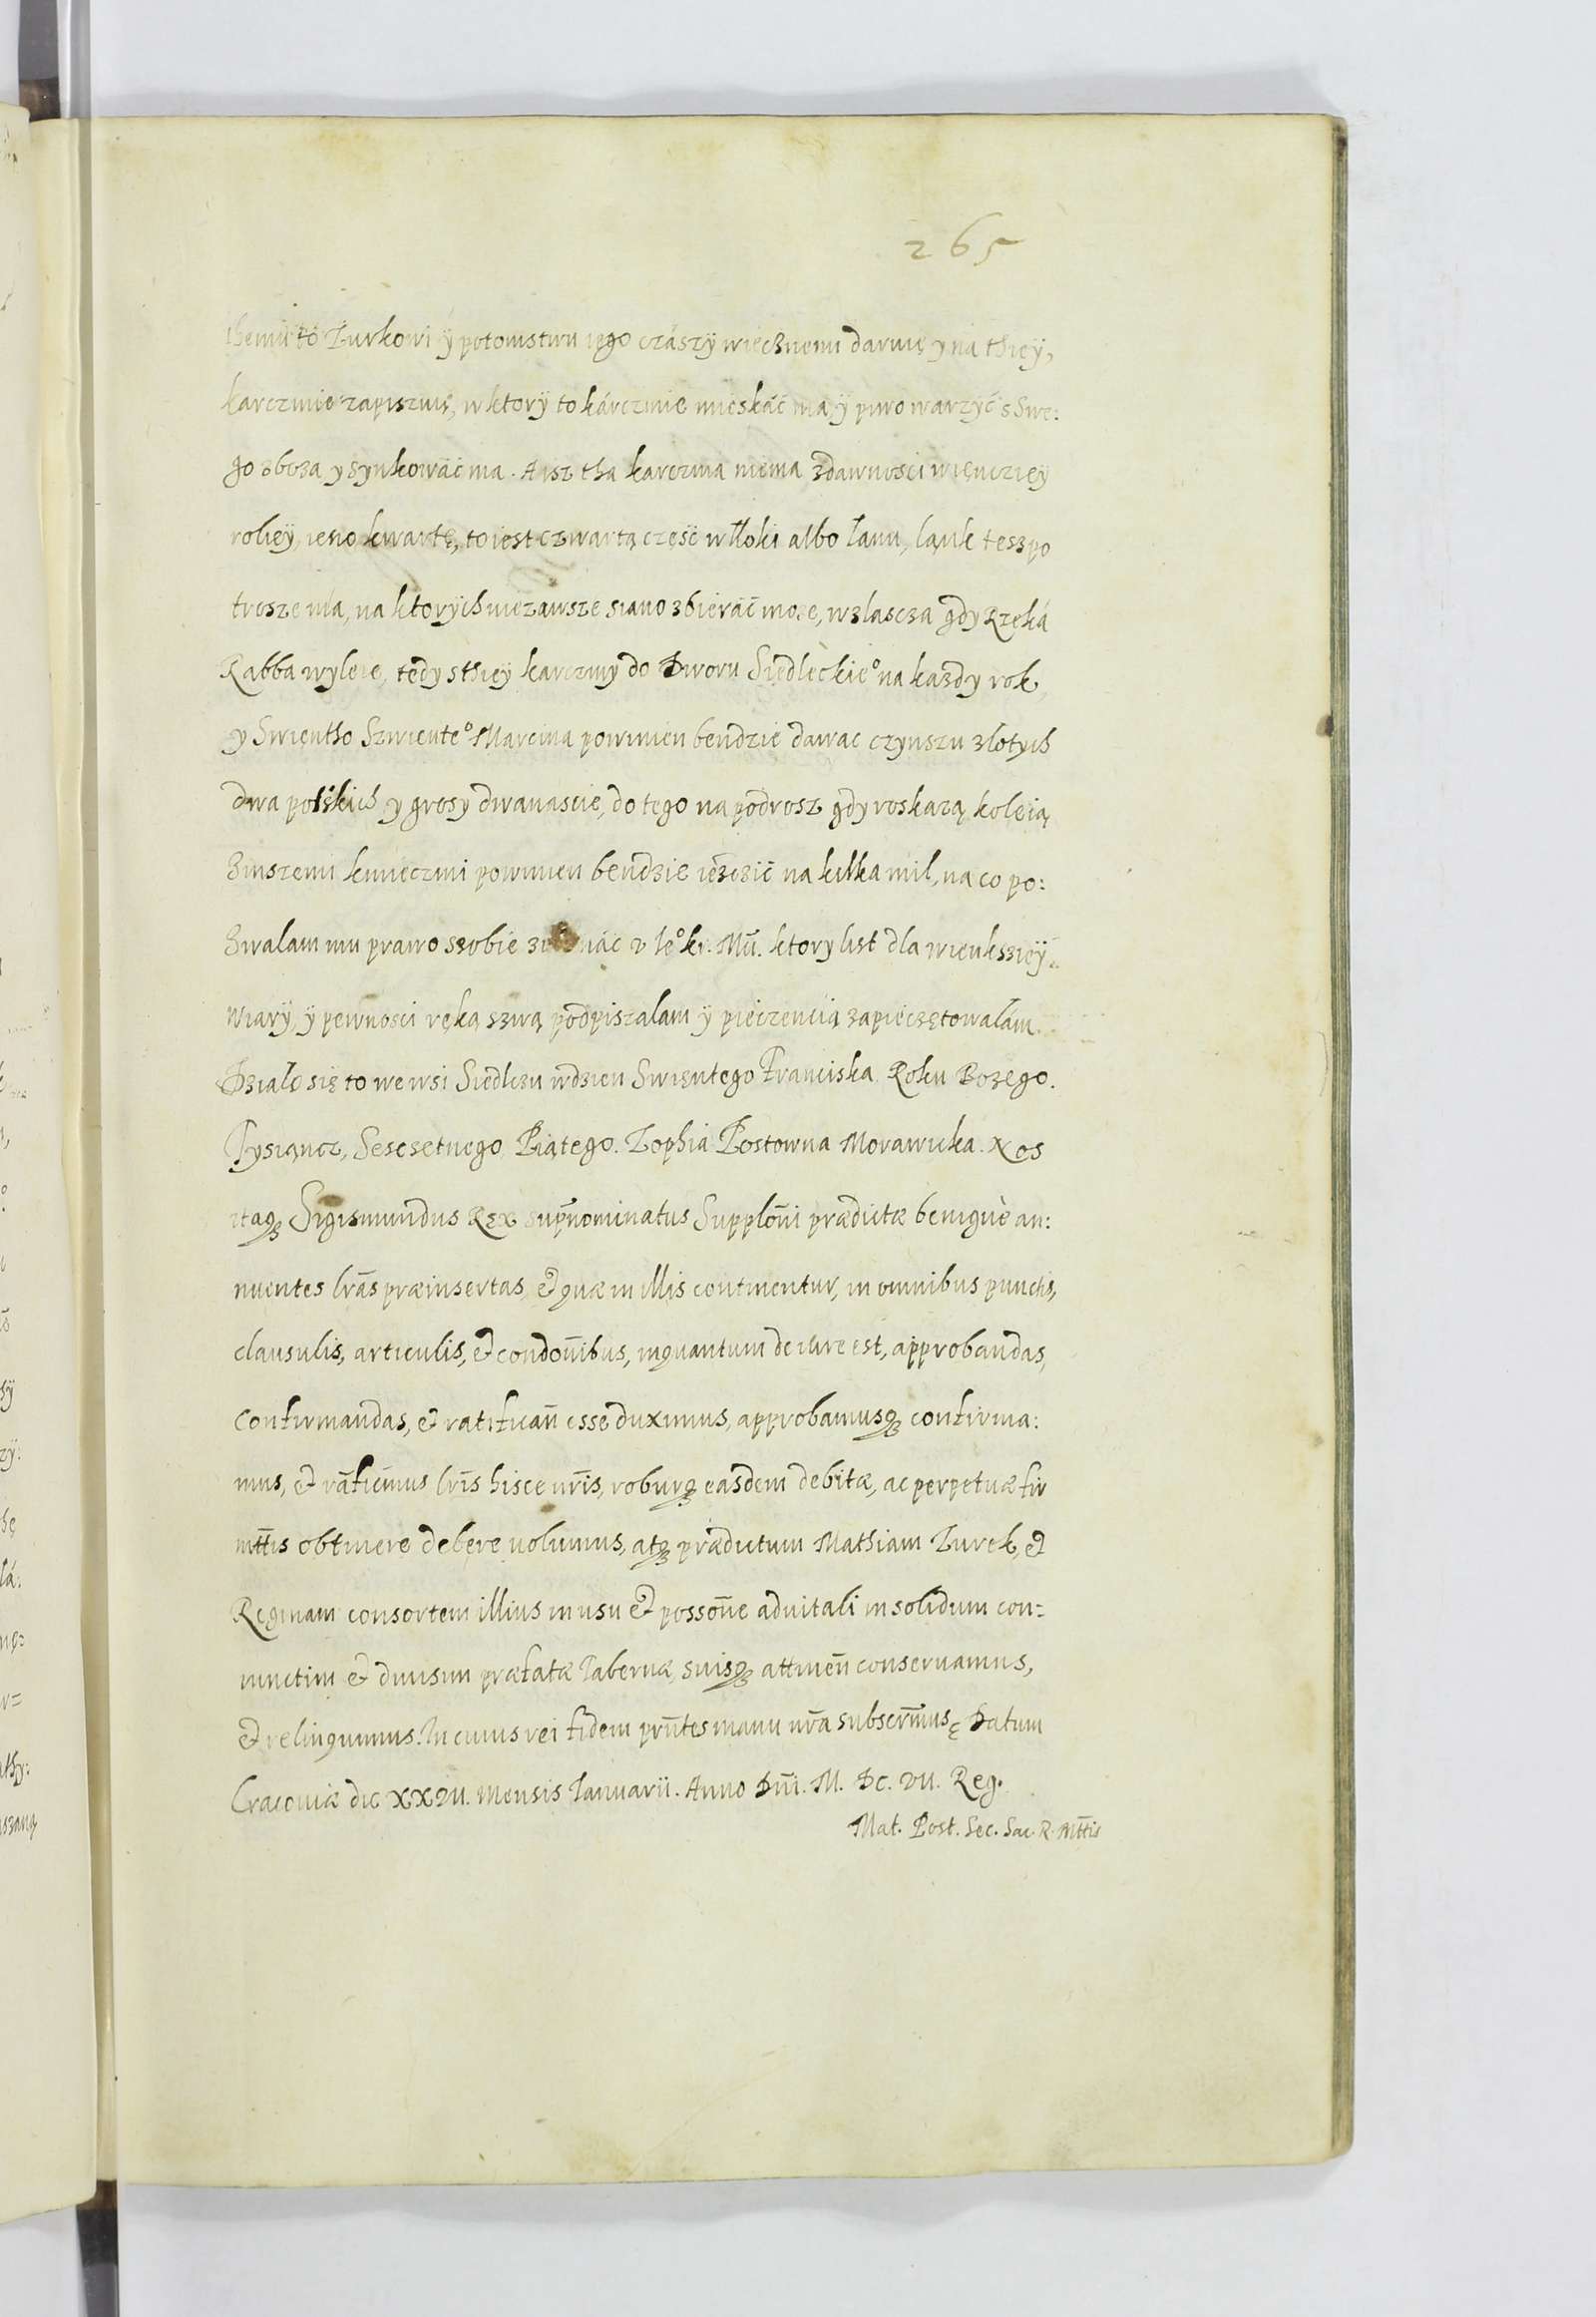 265
themu to Zurkowi ÿ potomstwu iego czászÿ wiecznemi daruię y na thiеÿ,
karczmie zapiszuię, w ktorÿ to kárczmie mieskáć ma ÿ piwo warzyć s swe:
go zboza y synkowáć ma. A isz tha karczma niema zdawnosci więnczięÿ
roliеÿ, ieno kwartę, to iest czwartą część włoki albo łanu, ląnk tesz po
trosze ma, na ktorÿch niezawsze siano zbieráć moze, wzlascza gdy Rzęká
Rabba wyleie, tedy sthięÿ karczmy do Dworu Siedleckie° na kazdy rok
y Swiętho Szwiente° Marcina powinien bendzie dawac czynszu złotych
dwa połskich y grosy dwanascie, do tego na podrosz gdy roskazą koleią
zinszemi kmieczmi powinien bendzie iezdzić na kilka mil, na co po:
zwalam mu prawo szobie u Ie° kr. Mći. ktory list dla wienksziеÿ
wiarÿ, ÿ pewnosci ręką szwą podpiszalam ÿ pieczencią zapieczętowałam.
Działo się to we wsi Siedlczu w dzien Swiętego Franciska Roku Bozego.
Tysiąncz, Sescsetnego Piątego. Zophia Postowna Morawicka. Nos
itaq3 Sigismundus Rex supͬnominatus Supplōni prædictæ benignè an:
nuentes lrās præinsertas, et quæ in illis continentur, in omnibus punctis,
clausulis, articulis, et condōnibus, inquantum de iure est, approbandas,
confirmandas, et ratifican̄ esse duximus, approbamusq3 confirma:
mus, et rātificimus lrīs hisce nrīs, roburq3 easdem debitæ, ac perpetuæ fir
mttīs obtinere debere uolumus, atq3 prædictum Mathiam Zurek, et
Reginam consortem illius in usu et possōne aduitali in solidum con=
iunctim et diuisim præfatæ Tabernæ, suisq3 attinen̄ conseruamus,
et relinquimus. In cuius rei fidem prn̄tes manu nrā subscrīmus, Datum
Cracouiæ die XXVII. Mensis Ianuarii. Anno Dnī. M. DC. VII. Reg.
Mat. Post. Sec. Sac. R. Mttīs